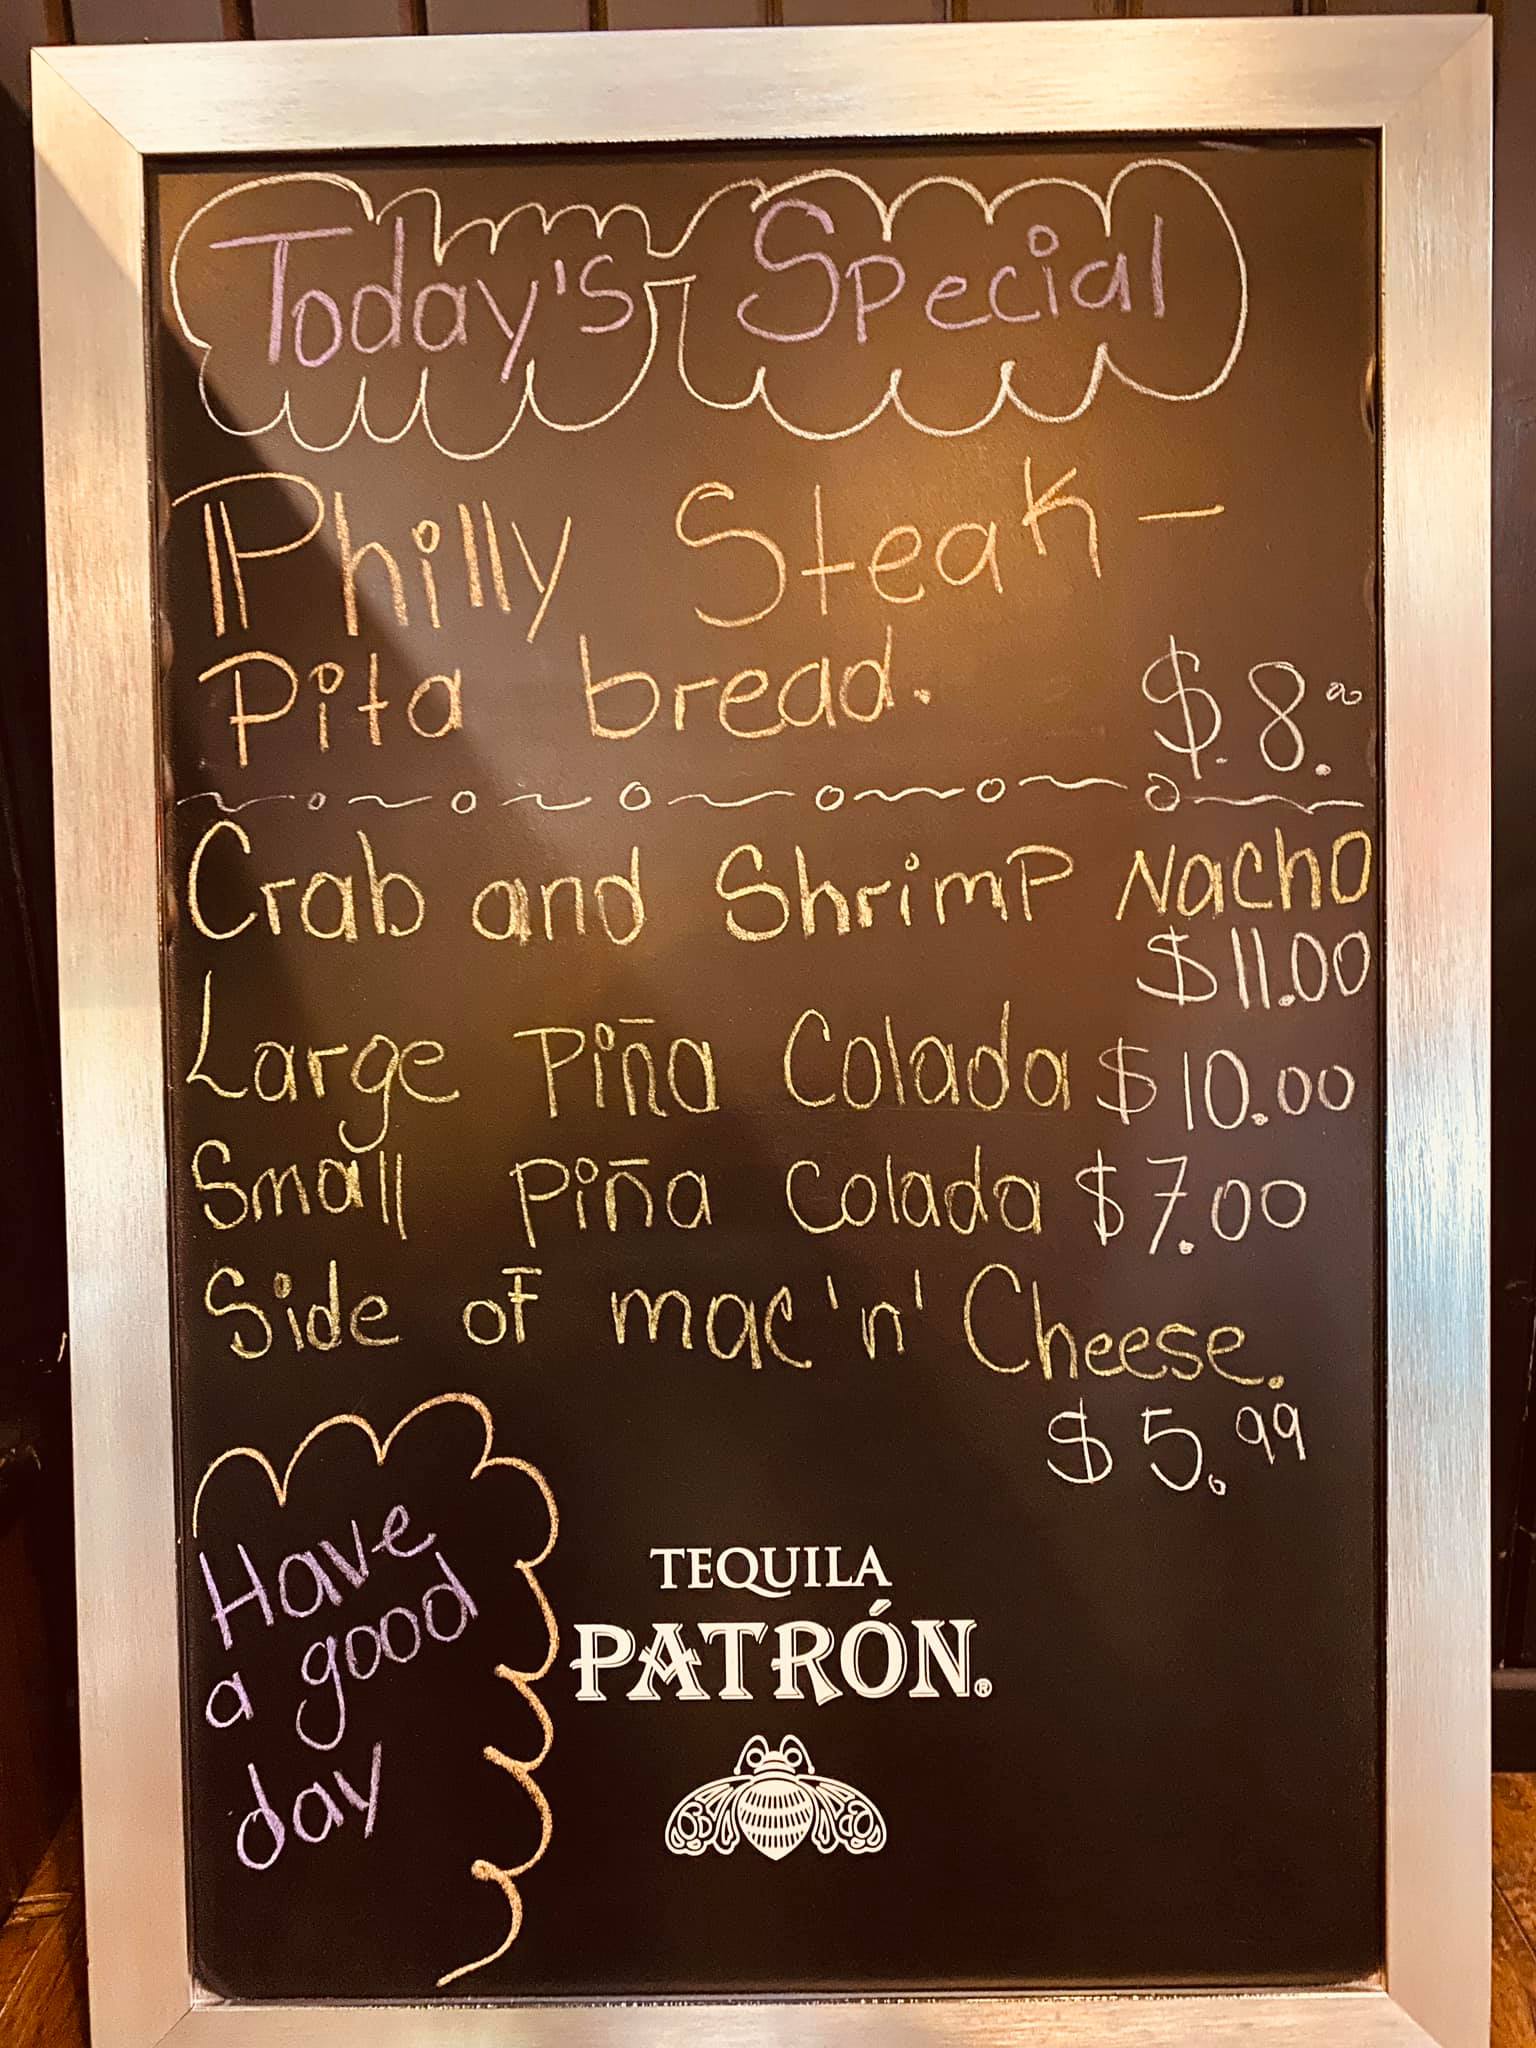 Today's Special
Philly Steak -
Pita bread.
$.8.00
Crab and Shrimp Nacho
$11.00
Large Piña Colada $10.00
Small Piña Colada $7.00
Side of mac 'n' Cheese.
$5.99
Have
a good
day
TEQUILA
PATRÓN®